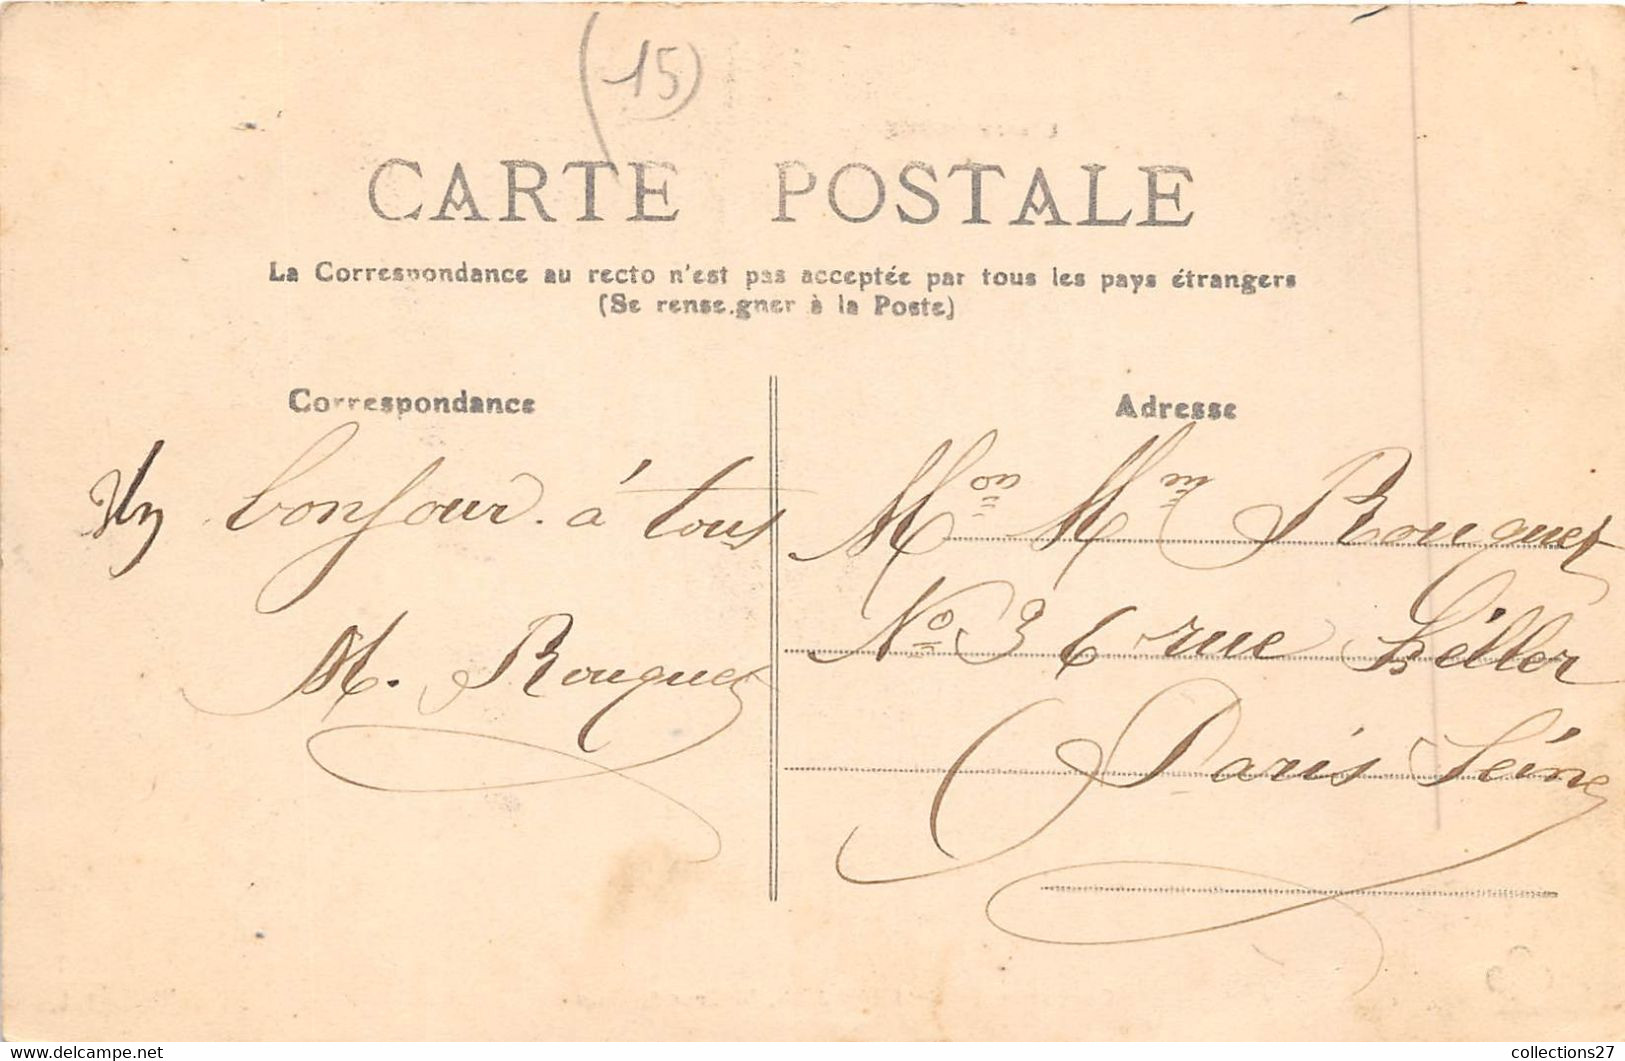 (15)
CARTE POSTALE
La Correspondance au recto n'est pas acceptée par tous les pays étrangers
(Se renseigner à la Poste)
Correspondance
Un bonjour à tous
M. Rouquet
Adresse
Mon Mme Rouquet
No 36 rue Léller
Paris Séine
collections27